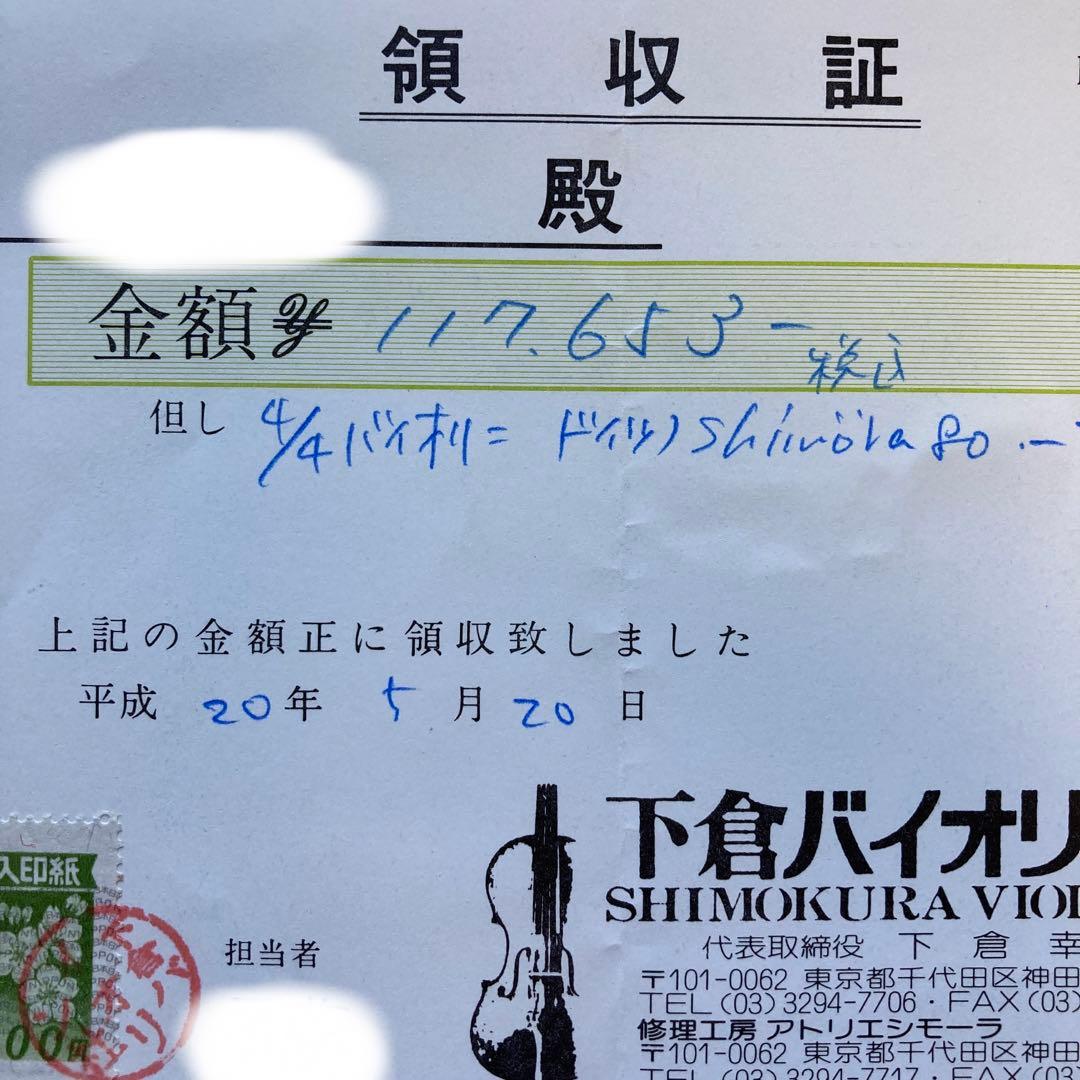 領収証
殿
金額¥ 117.653-
税込
但し 4/4バイオリン ドイツ Shimora 80.-
上記の金額正に領収致しました
平成 20年 5月 20日
入印紙
00円
担当者
下倉バイオリ
SHIMOKURA VIOL
代表取締役 下倉幸
〒101-0062 東京都千代田区神田
TEL(03)3294-7706・FAX(03)
修理工房 アトリエシモーラ
〒101-0062 東京都千代田区神田
TEL(03)3294-7717・FAX(03